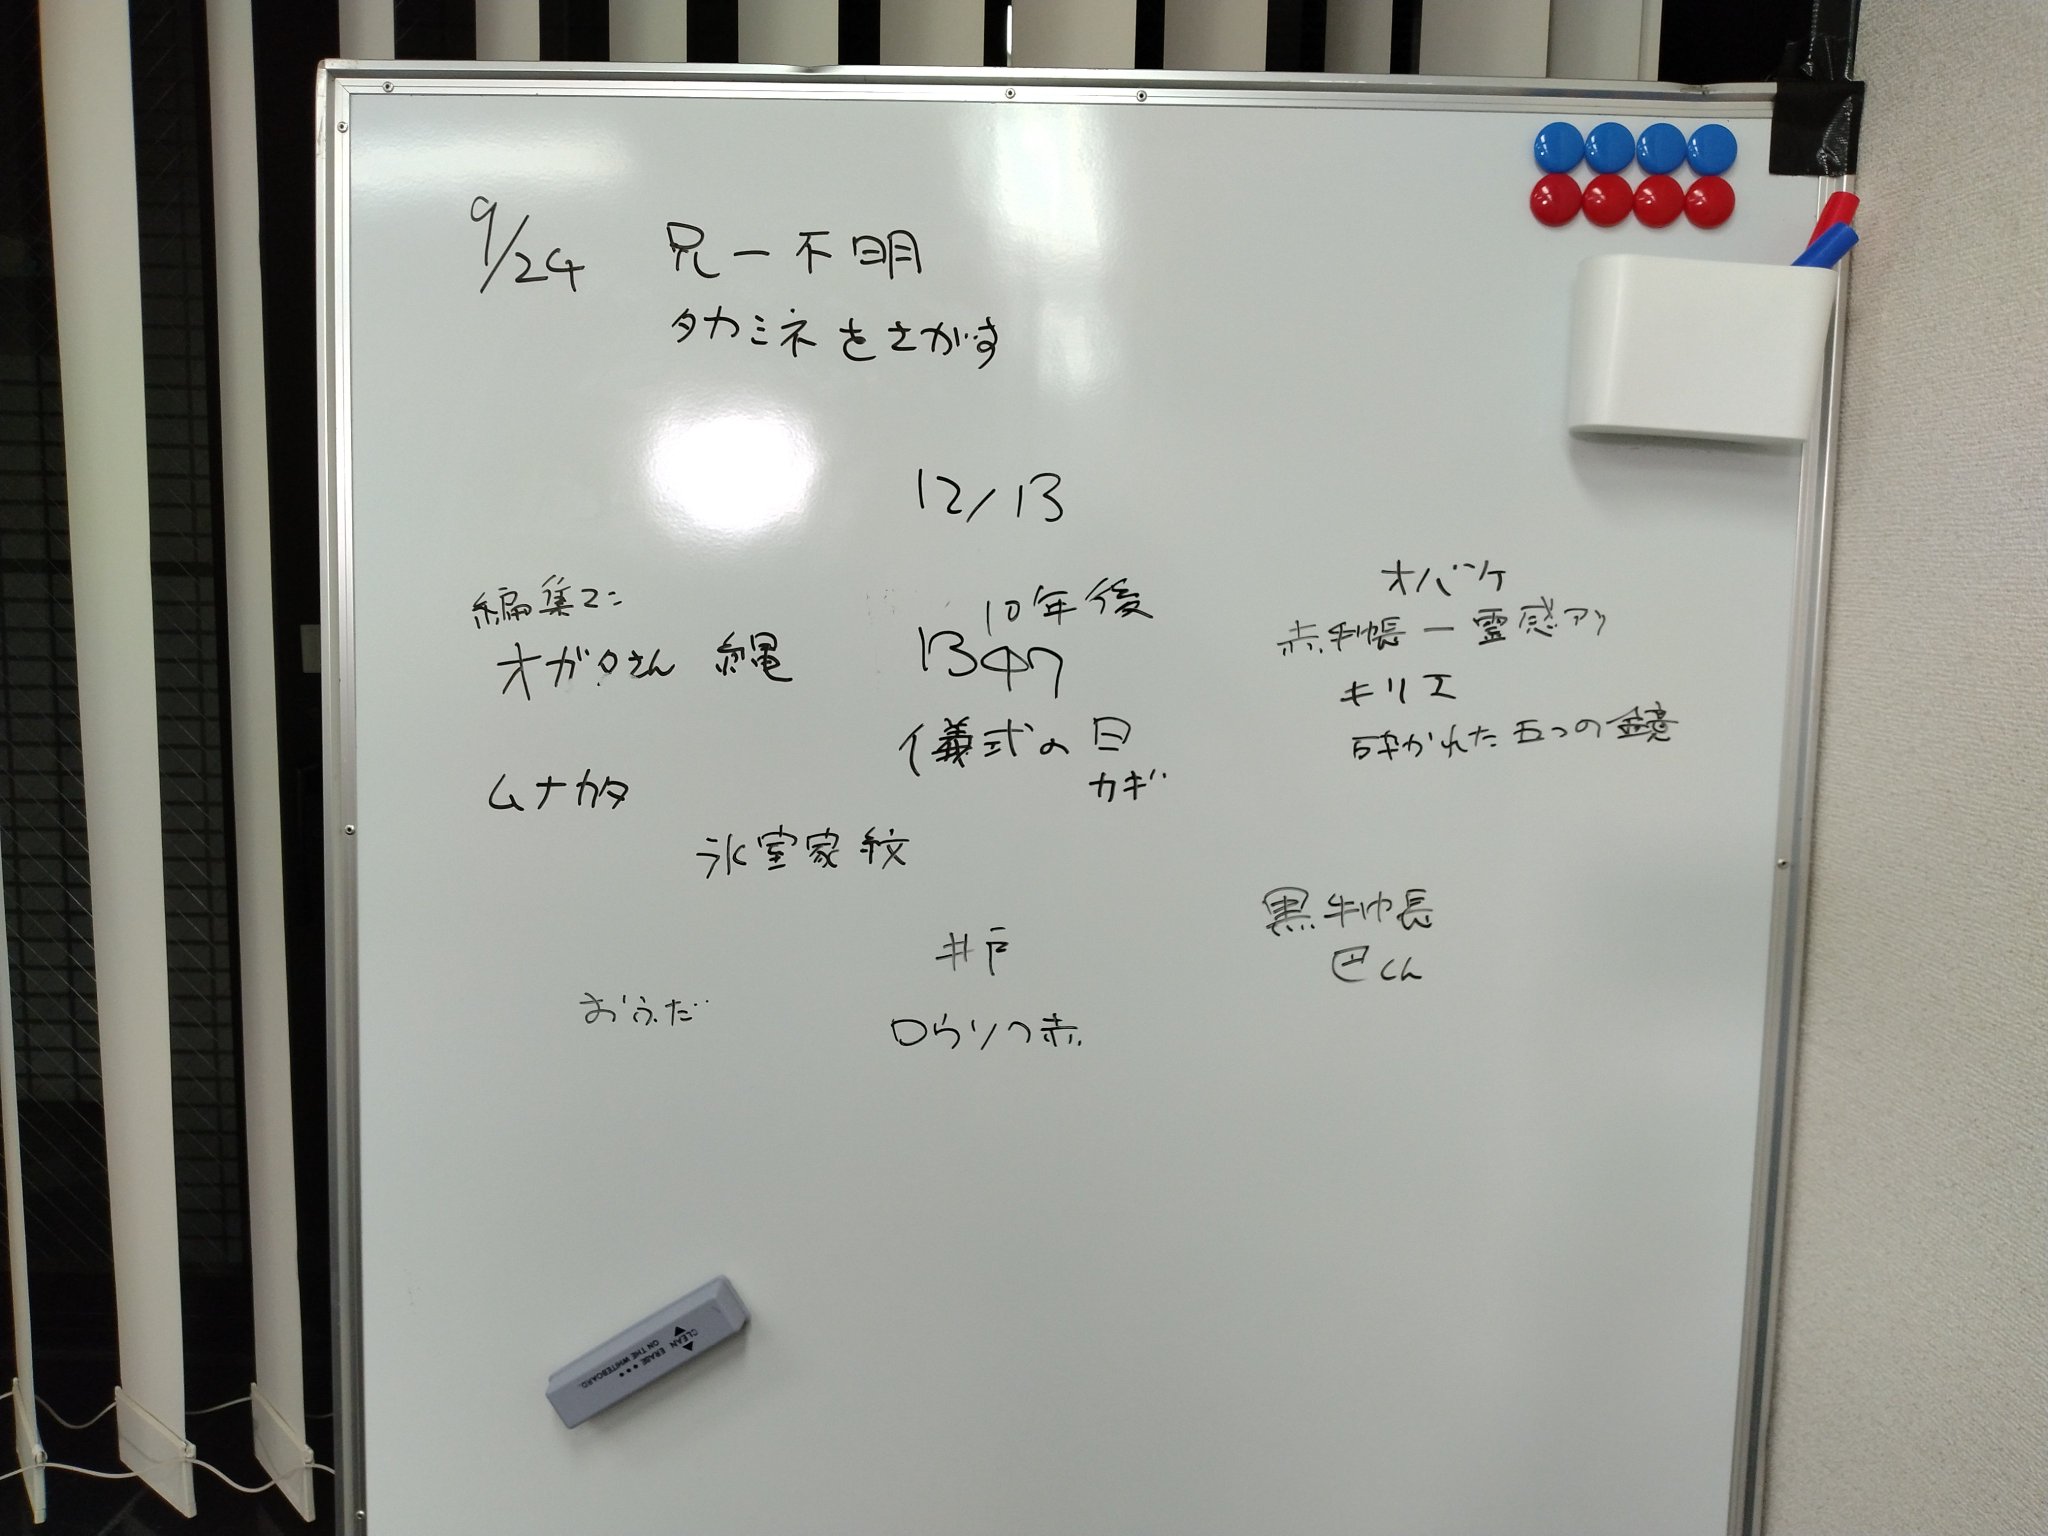 9/24 兄ー不明
タカミネをさがす
12/13
編集マン
オガタさん 縄
ムナカタ
氷室家紋
おふだ
10年後
1347
儀式の日
カギ
井戸
ロウソク赤
オバケ
赤手帳ー霊感アリ
キリエ
砕かれた五つの鏡
黒手帳
巴くん
CLEAN ERASE
ON THE WHITEBOARD.